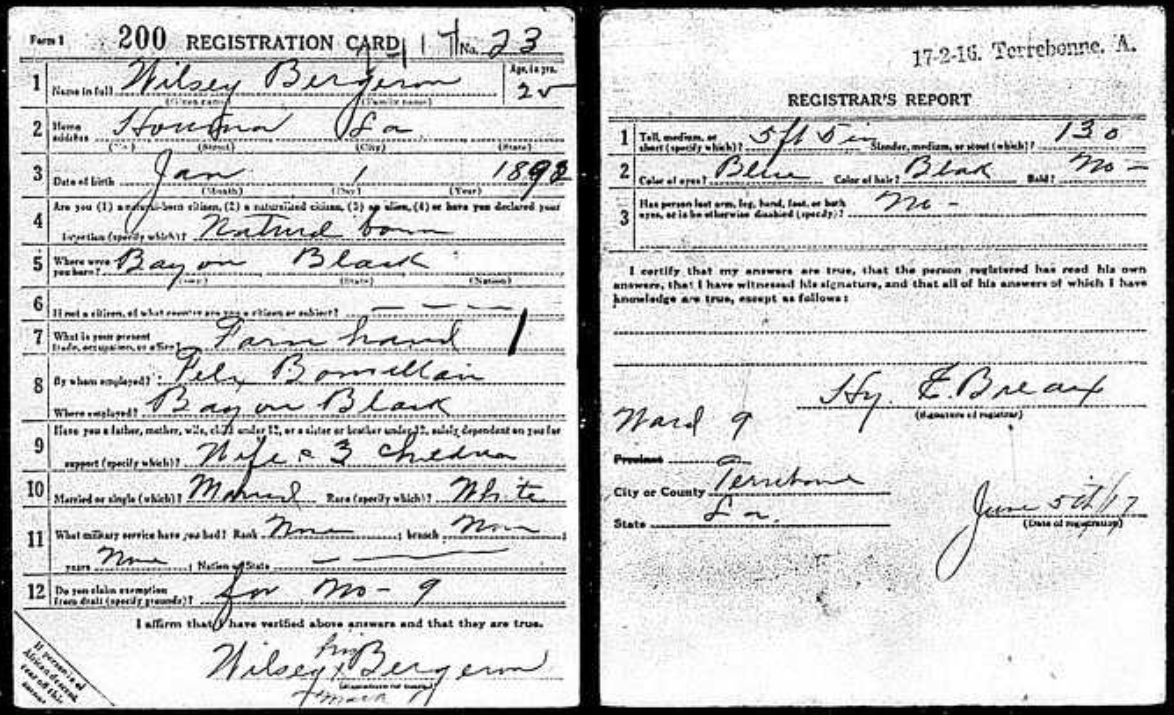 Form 1 200 REGISTRATION CARD No. 23
1 Name in full Wilsey Bergeron Age, in yrs. 25
(Given name) (Family name)
2 Home address Houma La
(No.) (Street) (City) (State)
3 Date of birth Jan 1 1892
(Month) (Day) (Year)
4 Are you (1) a natural-born citizen, (2) a naturalized citizen, (3) an alien, (4) or have you declared your
intention (specify which)? Natural born
5 Where were you born? Bayou Black
(Town) (State) (Nation)
6 If not a citizen, of what country are you a citizen or subject? — — — —
7 What is your present trade, occupation, or office? Farm hand 1
8 By whom employed?
Where employed? Bayou Black
9 Have you a father, mother, wife, child under 12, or a sister or brother under 12, solely dependent on you for
support (specify which)? Wife & 3 Children
10 Married or single (which)? Married Race (specify which)? White
11 What military service have you had? Rank None ; branch None ;
years None ; Nation or State —
12 Do you claim exemption from draft (specify grounds)? for No- 9
I affirm that I have verified above answers and that they are true.
his
Wilsey x Bergeron
(Signature or mark)
mark
If person is of African descent, tear off this corner
17-2-16. Terrebonne. A.
REGISTRAR'S REPORT
1 Tall, medium, or short (specify which)? 5 ft 5 in Slender, medium, or stout (which)? 130
2 Color of eyes? Blue Color of hair? Blak Bald? No -
3 Has person lost arm, leg, hand, foot, or both eyes, or is he otherwise disabled (specify)? No -
I certify that my answers are true, that the person registered has read his own
answers, that I have witnessed his signature, and that all of his answers of which I have
knowledge are true, except as follows:
Hy. E. Breaux
(Signature of registrar)
Ward 9
Precinct
City or County Terrebonne
State La.
June 5th/17
(Date of registration)